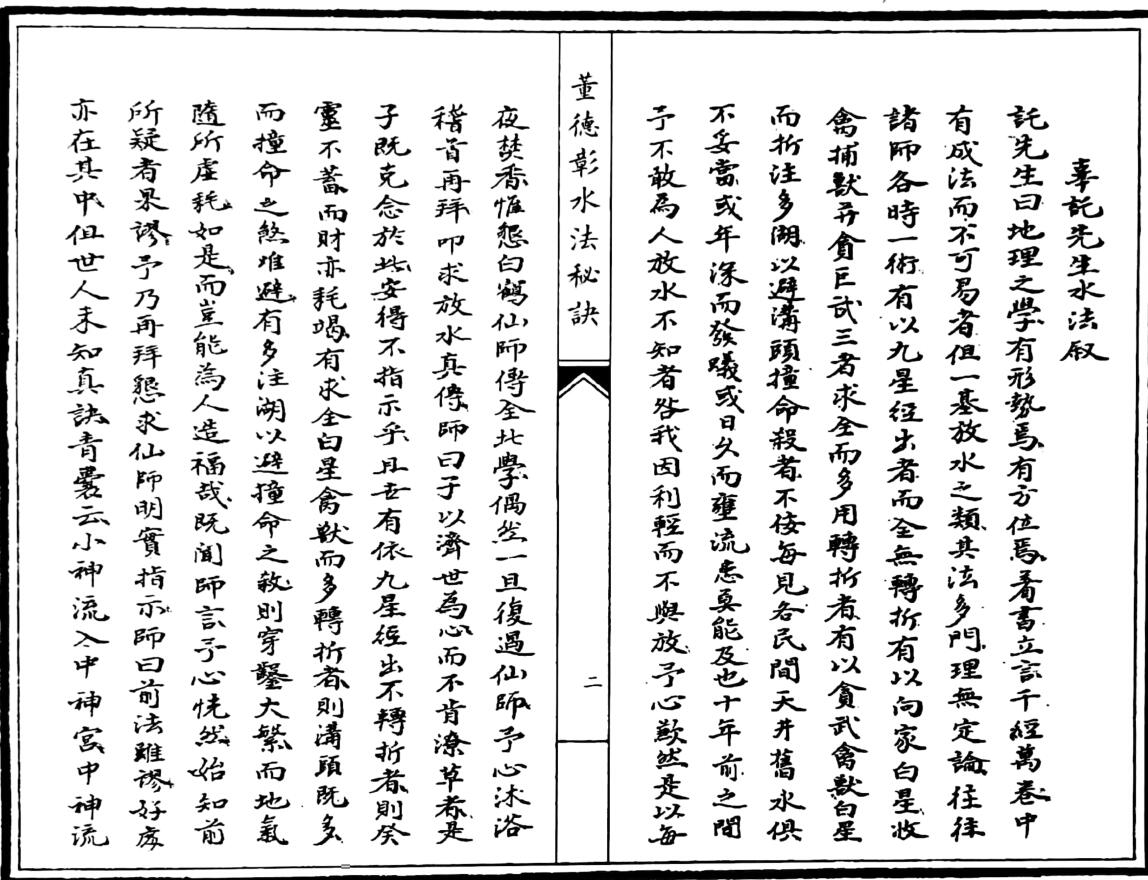 辜託先生水法叙
託先生曰地理之學有形勢焉有方位焉着書立言千經萬卷中
有成法而不可易者但一基放水之類其法多門理無定論往往
諸師各時一術有以九星經出者而全無轉折有以向家白星收
禽捕獸并貪巨武三者求全而多用轉折者有以貪武禽獸白星
而折注多湖以避溝頭撞命殺者不侫每見各民間天井舊水俱
不妥當或年深而發蟻或日久而壅流悉莫能及也十年前之間
予不敢為人放水不知者咎我因利輕而不與放予心歉然是以每
董德彰水法秘訣
二
夜焚香惟懇白鶴仙師傳全此學偶然一旦復遇仙師予心沐浴
稽首再拜叩求放水真傳師曰子以濟世為心而不肯潦草者是
子既克念於此安得不指示乎且世有依九星經出不轉折者則癸
靈不蓄而財亦耗竭有求全白星禽獸而多轉折者則溝頭既多
而撞命之煞难避有多注湖以避撞命之殺則穿鑿大繁而地氣
隨所虛耗如是而豈能為人造福哉既聞師言予心恍然始知前
所疑者果謬予乃再拜懇求仙師明實指示師曰前法雖謬好處
亦在其中但世人未知真訣青囊云小神流入中神宮中神流